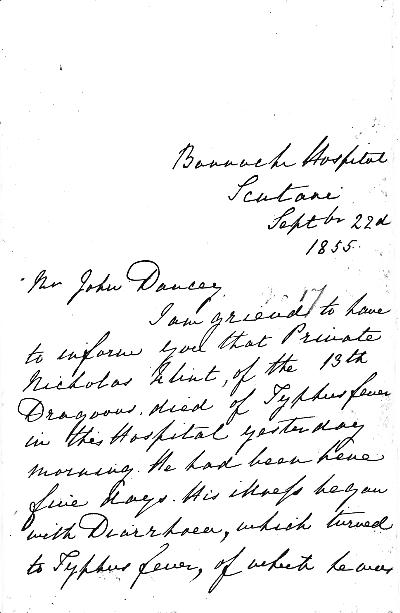 Barrack Hospital
Scutari
Septbr 22d
1855.
Mr John Dancey
I am grieved to have
to inform you that Private
Nicholas Flint, of the 13th
Dragoons. died of Typhus fever
in this Hospital yesterday
morning. He had been here
five days. His illness began
with Diarrhoea, which turned
to Typhus fever, of which he was